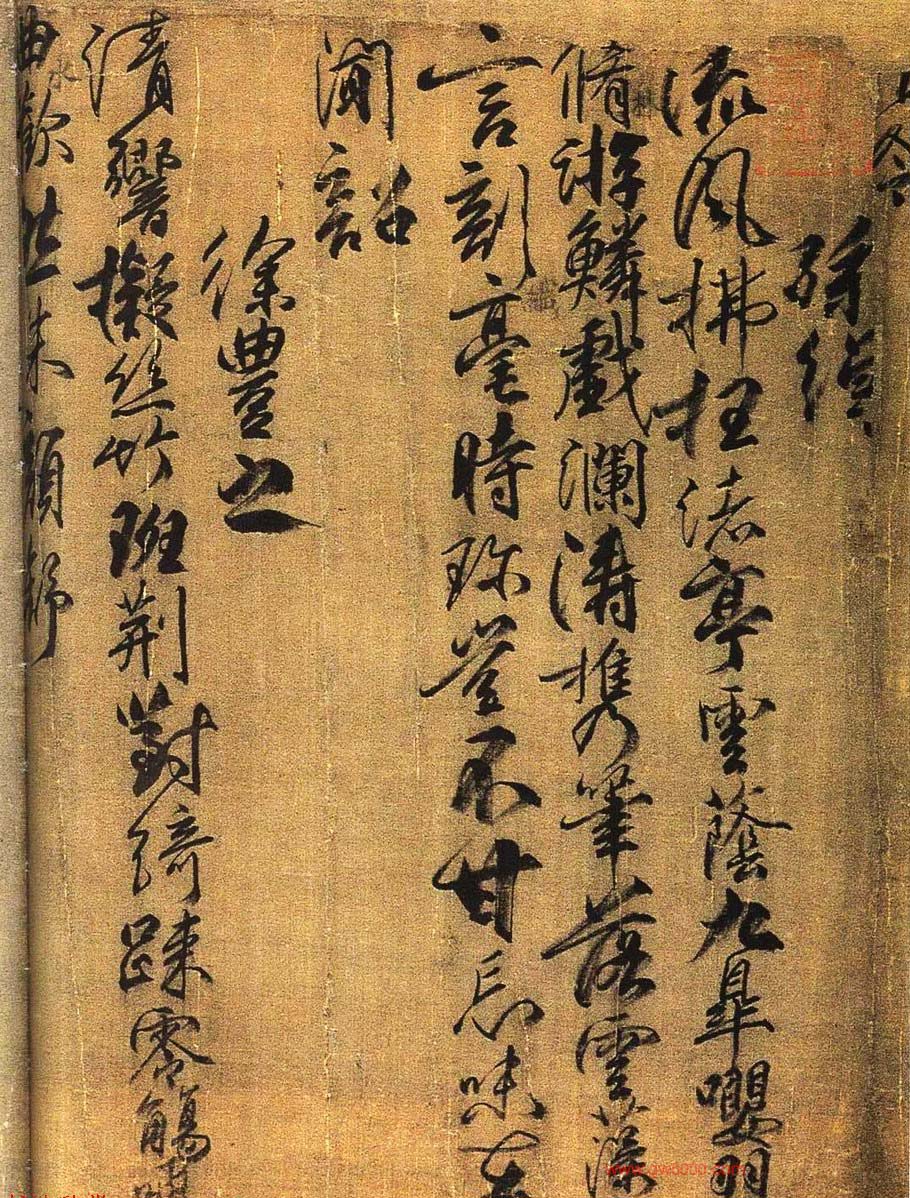 孫綽
流風拂枉渚亭雲蔭九皋嚶羽
脩游鱗戲瀾濤攜筆落雲藻
言剖毫時珍豈不甘忘味在
聞韶
徐豐之
清響擬絲竹班荊對綺踈零觴
曲水歡然朱顏舒